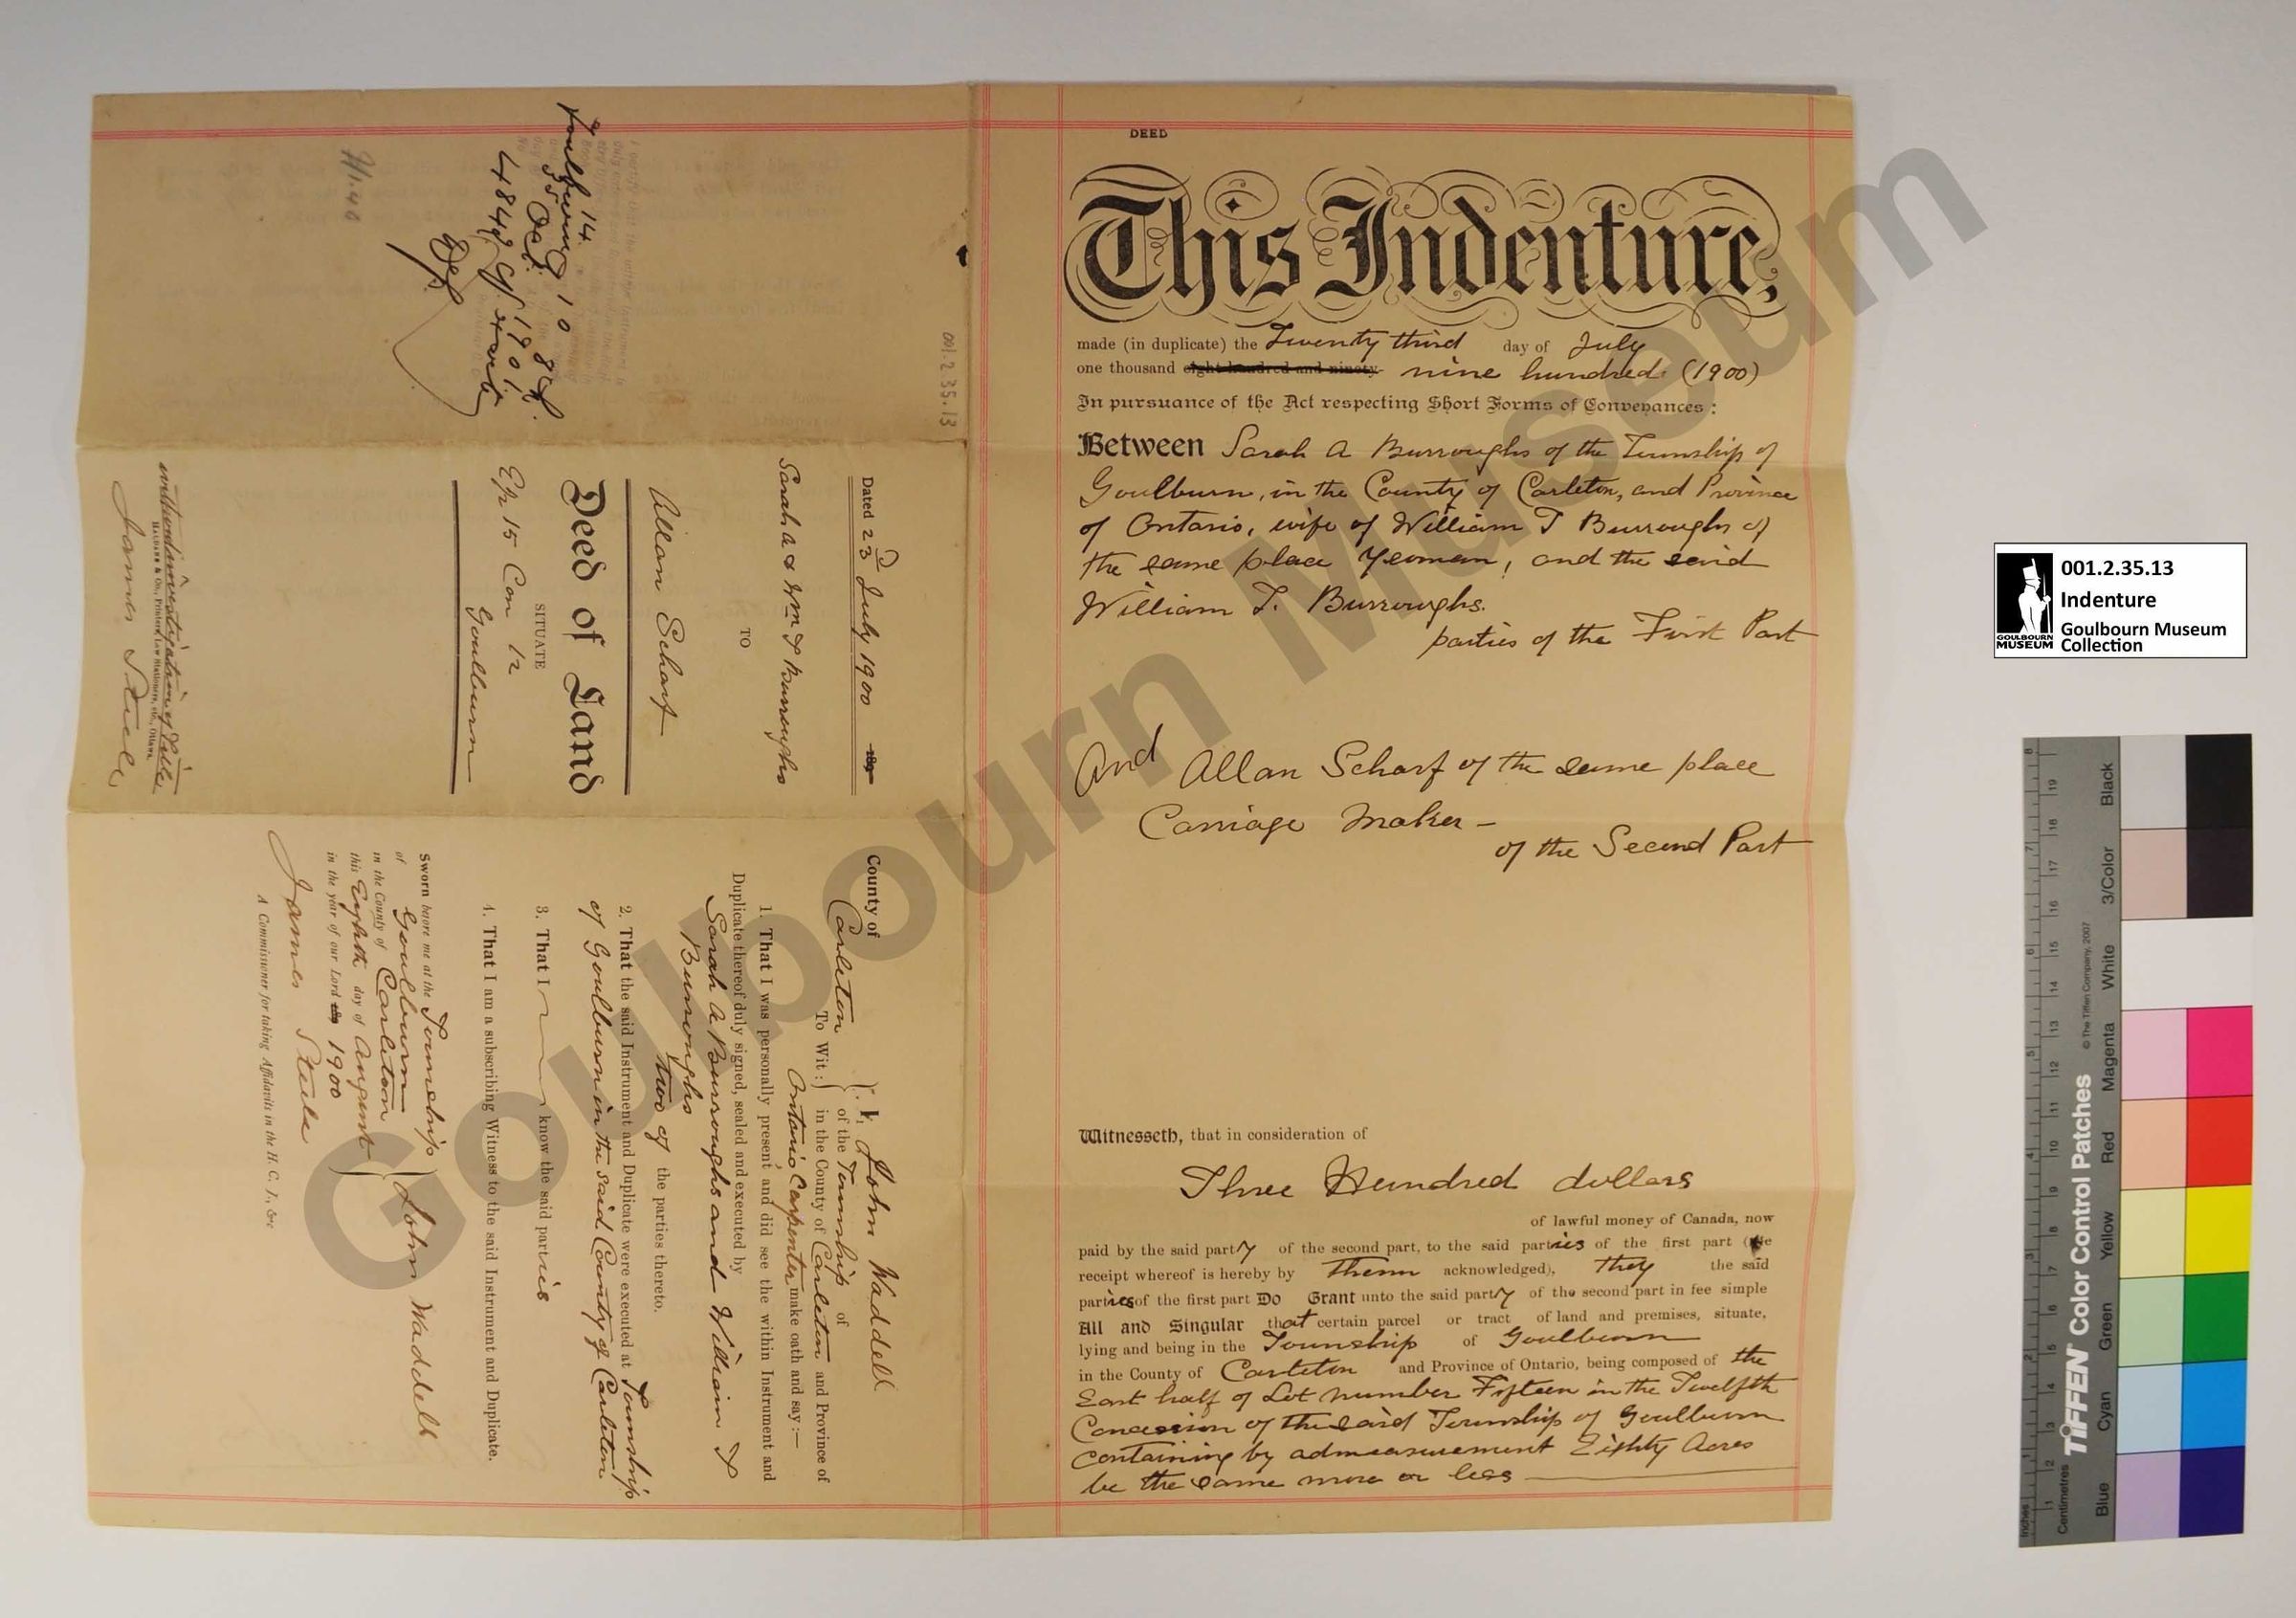 DEED
This Indenture,
made (in duplicate) the Twenty third day of July
one thousand eight hundred and ninety nine hundred (1900)
In pursuance of the Act respecting Short Forms of Conveyances:
Between Sarah A Burroughs of the Township of
Goulburn, in the County of Carleton, and Province
of Ontario, wife of William T Burroughs of
the same place Yeoman, and the said
William T. Burroughs.
parties of the First Part
And Allan Scharf of the same place
Carriage Maker –
of the Second Part
Witnesseth, that in consideration of
Three Hundred dollars
of lawful money of Canada, now
paid by the said party of the second part, to the said parties of the first part (the
receipt whereof is hereby by them acknowledged), they the said
parties of the first part Do Grant unto the said party of the second part in fee simple
All and Singular that certain parcel or tract of land and premises, situate,
lying and being in the Township of Goulburn
in the County of Carleton and Province of Ontario, being composed of the
East half of Lot number Fifteen in the Twelfth
Concession of the said Township of Goulburn
containing by admeasurement Eighty Acres
be the same more or less
001.2.35.13
Dated 23 July 1900 189
Sarah A & Wm T Burroughs
TO
Allan Scharf
Deed of Land
SITUATE
E½ 15 Con 12
Goulburn
without investigation of title
James Steele
County of
Carleton
To Wit:
I, John Waddell
of the Township of
in the County of Carleton and Province of
Ontario Carpenter make oath and say:—
1. That I was personally present, and did see the within Instrument and
Duplicate thereof duly signed, sealed and executed by
Sarah A Burroughs and William T
Burroughs
two of the parties thereto.
2. That the said Instrument and Duplicate were executed at Township
of Goulburn in the said County of Carleton
3. That I know the said parties
4. That I am a subscribing Witness to the said Instrument and Duplicate.
Sworn before me at the Township
of Goulburn
in the County of Carleton
this Eighth day of August
in the year of our Lord 189 1900
John Waddell
James Steele
A Commissioner for taking Affidavits in the H. C. J., &c
001.2.35.13
Indenture
Goulbourn Museum
Collection
GOULBOURN
MUSEUM
Goulbourn Museum
TIFFEN Color Control Patches
© The Tiffen Company, 2007
Inches
Centimetres
Blue
Cyan
Green
Yellow
Red
Magenta
White
3/Color
Black